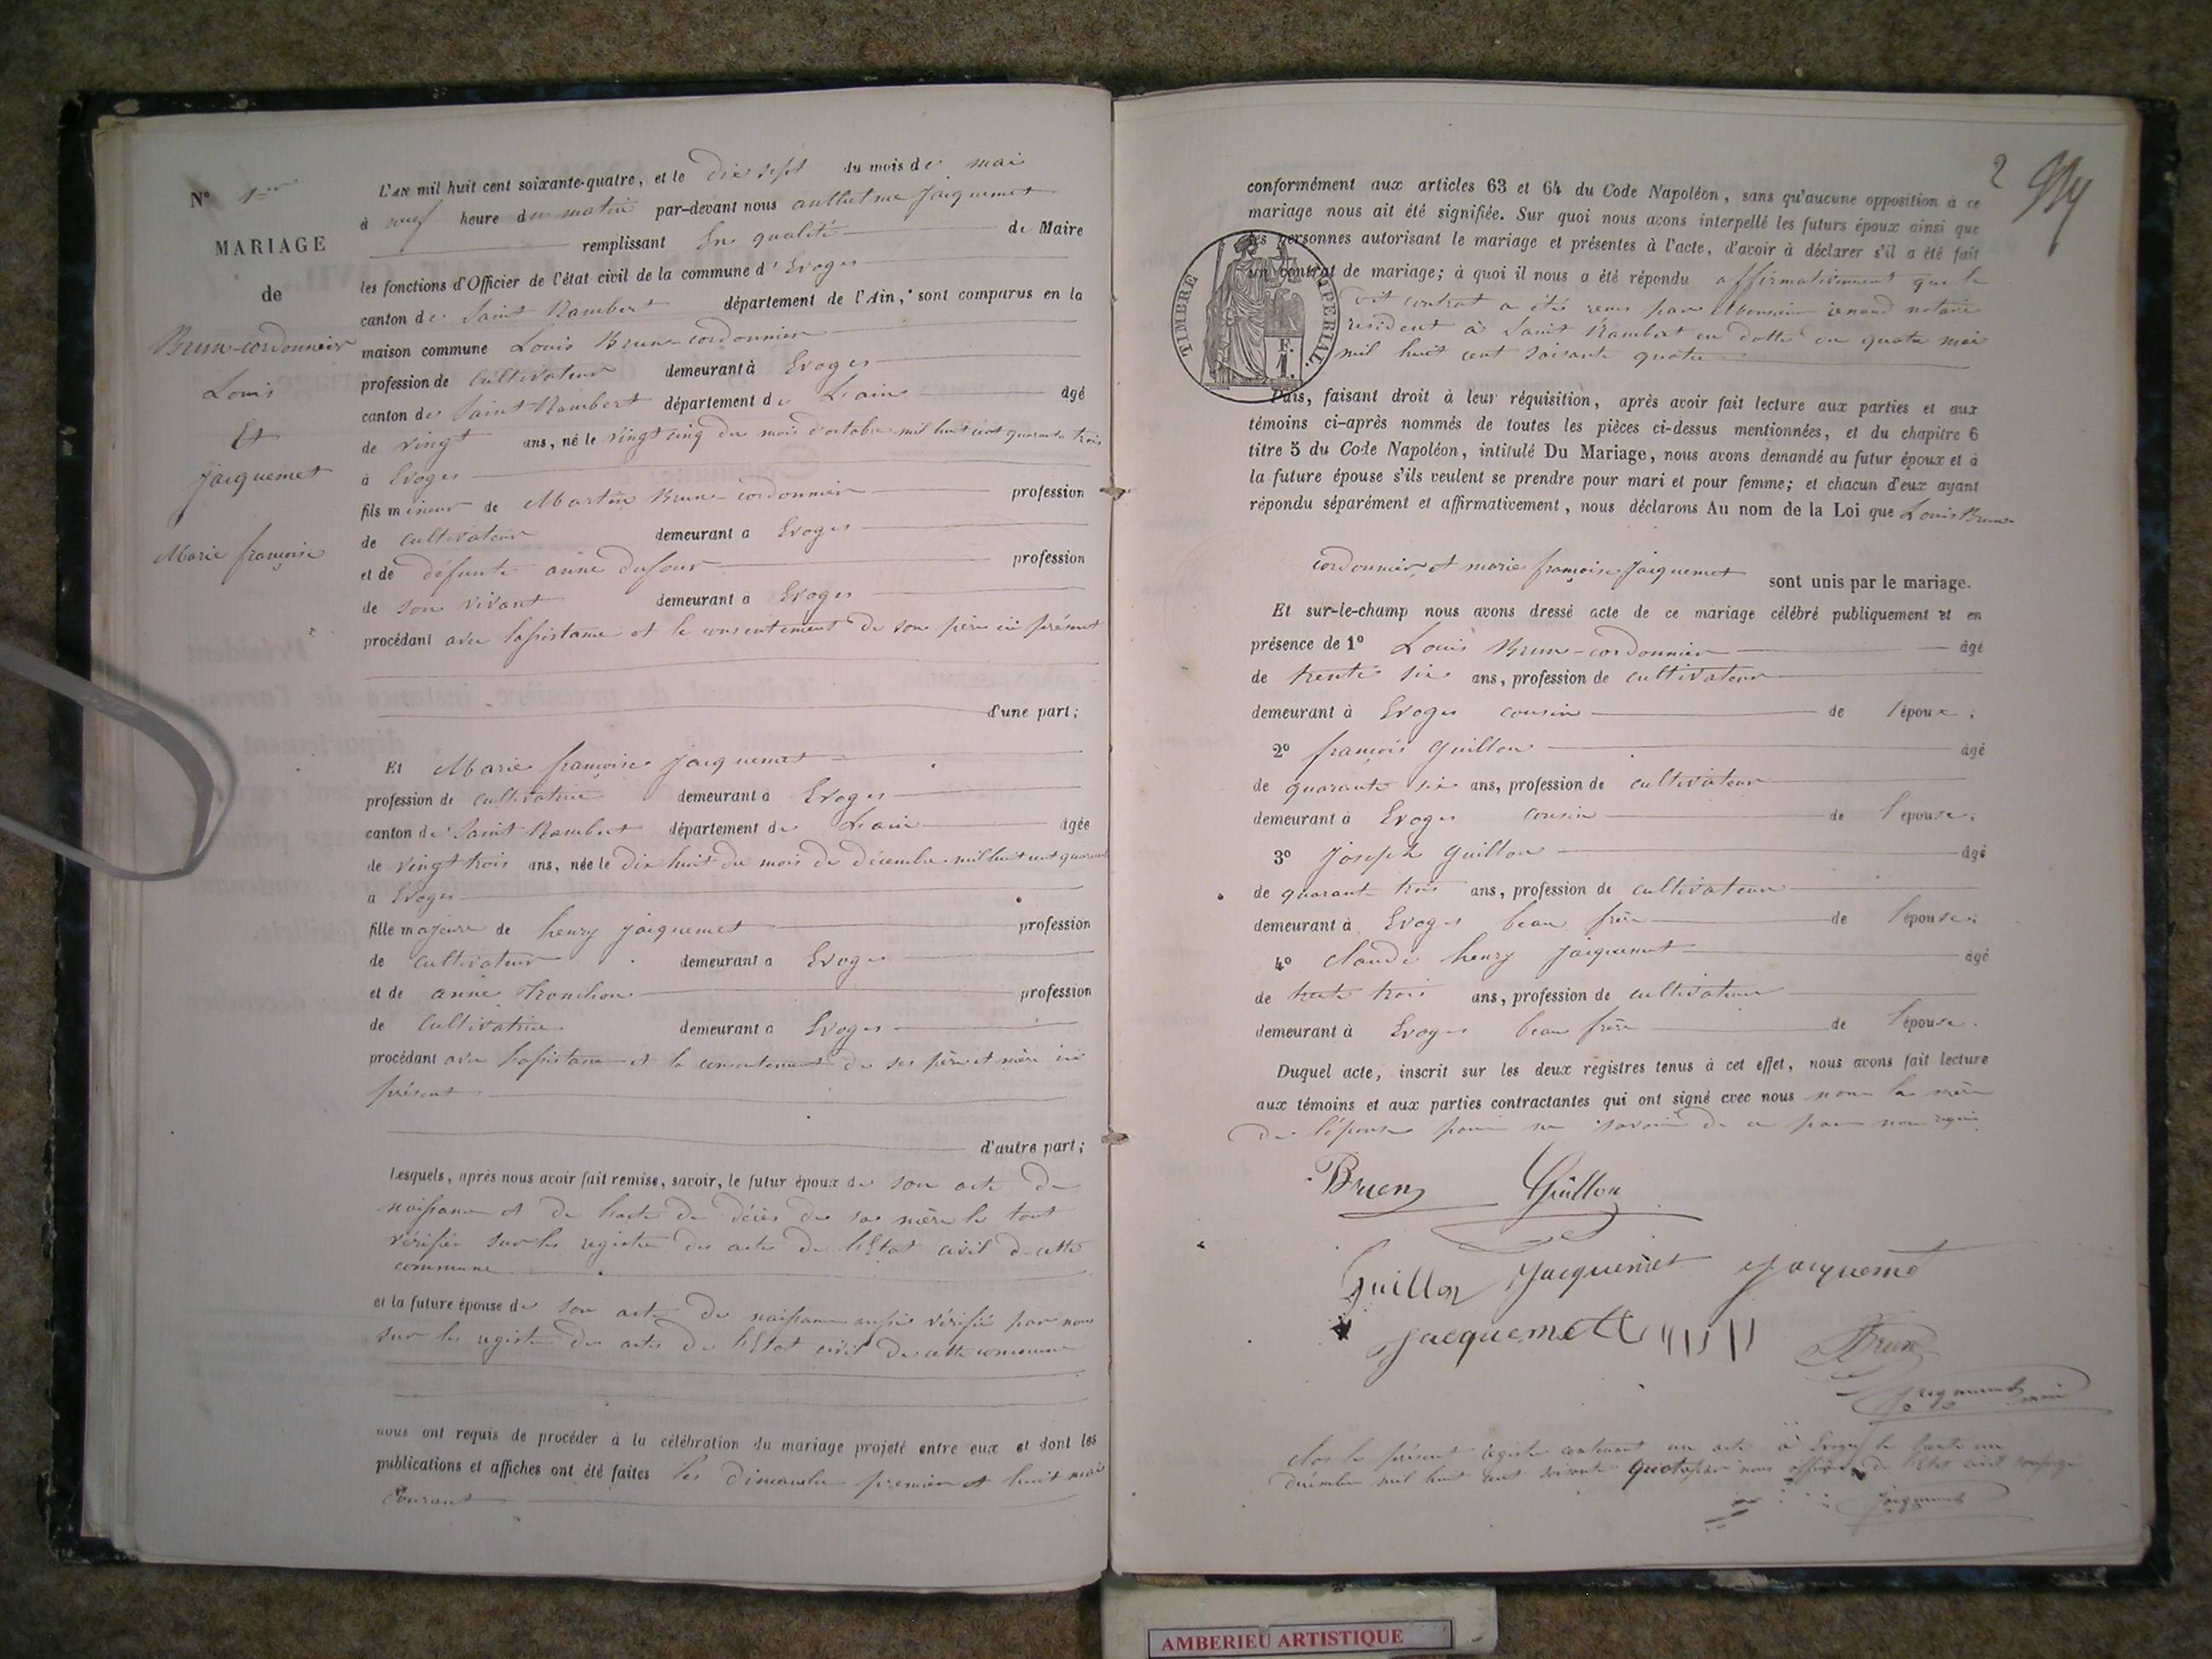 N° 1er
MARIAGE
de
Brun-cordonnier
Louis
Et
Jacquemet
Marie françoise
L'AN mil huit cent soixante-quatre, et le dix sept du mois de mai
à neuf heure du matin par-devant nous anthelme Jacquemet
remplissant En qualité de Maire
les fonctions d'Officier de l'état civil de la commune d'Evoges
canton de Saint Rambert département de l'Ain, sont comparus en la
maison commune Louis Brun-cordonnier
profession de cultivateur demeurant à Evoges
canton de Saint Rambert département de Lain âgé
de vingt ans, né le vingt cinq du mois d'octobre mil huit cent quarante trois
à Evoges
fils mineur de Martin Brun-cordonnier profession
de cultivateur demeurant à Evoges
et de défunte anne dufour profession
de son vivant demeurant à Evoges
procédant avec l'assistance et le consentement de son père ici présent
d'une part;
Et Marie françoise Jacquemet
profession de cultivatrice demeurant à Evoges
canton de Saint Rambert département de Lain âgée
de vingt trois ans, née le dix huit du mois de décembre mil huit cent quarante
à Evoges
fille majeure de henry jacquemet profession
de cultivateur demeurant à Evoges
et de anne Tronchon profession
de cultivatrice demeurant à Evoges
procédant avec l'assistance et le consentement de ses père et mère ici
présent
d'autre part;
Lesquels, après nous avoir fait remise, savoir, le futur époux de son acte de
naissance et de l'acte de décès de sa mère le tout
vérifié sur les registre des actes de l'Etat civil de cette
commune
et la future épouse de son acte de naissance aussi vérifié par nous
sur les registre des actes de l'Etat civil de cette commune
nous ont requis de procéder à la célébration du mariage projeté entre eux et dont les
publications et affiches ont été faites les dimanche premier et huit mai
courant
2
conformément aux articles 63 et 64 du Code Napoléon, sans qu'aucune opposition à ce
mariage nous ait été signifiée. Sur quoi nous avons interpellé les futurs époux ainsi que
les personnes autorisant le mariage et présentes à l'acte, d'avoir à déclarer s'il a été fait
un contrat de mariage; à quoi il nous a été répondu affirmativement que le
dit contrat a été reçu par Monsieur notaire
résident à Saint Rambert en datte du quatre mai
mil huit cent soixante quatre
TIMBRE IMPERIAL.
Puis, faisant droit à leur réquisition, après avoir fait lecture aux parties et aux
témoins ci-après nommés de toutes les pièces ci-dessus mentionnées, et du chapitre 6
titre 5 du Code Napoléon, intitulé Du Mariage, nous avons demandé au futur époux et à
la future épouse s'ils veulent se prendre pour mari et pour femme; et chacun d'eux ayant
répondu séparément et affirmativement, nous déclarons Au nom de la Loi que Louis Brun
cordonnier et marie françoise Jacquemet sont unis par le mariage.
Et sur-le-champ nous avons dressé acte de ce mariage célébré publiquement et en
présence de 1° Louis Brun-cordonnier âgé
de trente six ans, profession de cultivateur
demeurant à Evoges cousin de l'époux;
2° françois Guillon âgé
de quarante six ans, profession de cultivateur
demeurant à Evoges cousin de l'épouse;
3° Joseph Guillon âgé
de quarante trois ans, profession de cultivateur
demeurant à Evoges beau frère de l'épouse;
4° Claude henry Jacquemet âgé
de trente trois ans, profession de cultivateur
demeurant à Evoges beau frère de l'épouse.
Duquel acte, inscrit sur les deux registres tenus à cet effet, nous avons fait lecture
aux témoins et aux parties contractantes qui ont signé avec nous non la mère
de l'épouse pour ne savoir de ce par nous requis
Brun Guillon
Guillon Jacquemet Jacquemet
Jacquemet Brun
Jacquemet maire
Clos le présent registre contenant un acte à Evoges le trente un
décembre mil huit cent soixante quatre par nous officier de l'Etat civil soussigné
Jacquemet
AMBERIEU ARTISTIQUE